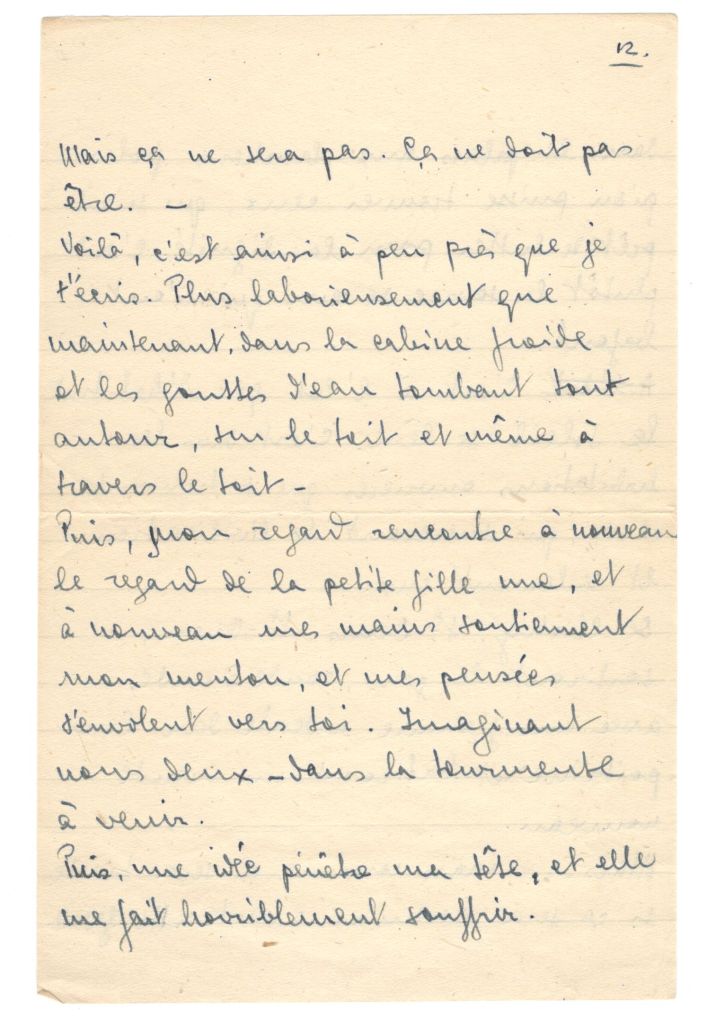 12.
Mais ça ne sera pas. Ça ne doit pas
être. –
Voilà, c'est ainsi à peu près que je
t'écris. Plus laborieusement que
maintenant, dans la cabine froide
et les gouttes d'eau tombant tout
autour, sur le toit et même à
travers le toit –
Puis, mon regard rencontre à nouveau
le regard de la petite fille nue, et
à nouveau mes mains soutiennent
mon menton, et mes pensées
s'envolent vers toi. Imaginant
nous deux – dans la tourmente
à venir.
Puis, une idée pénètre ma tête, et elle
me fait horriblement souffrir.